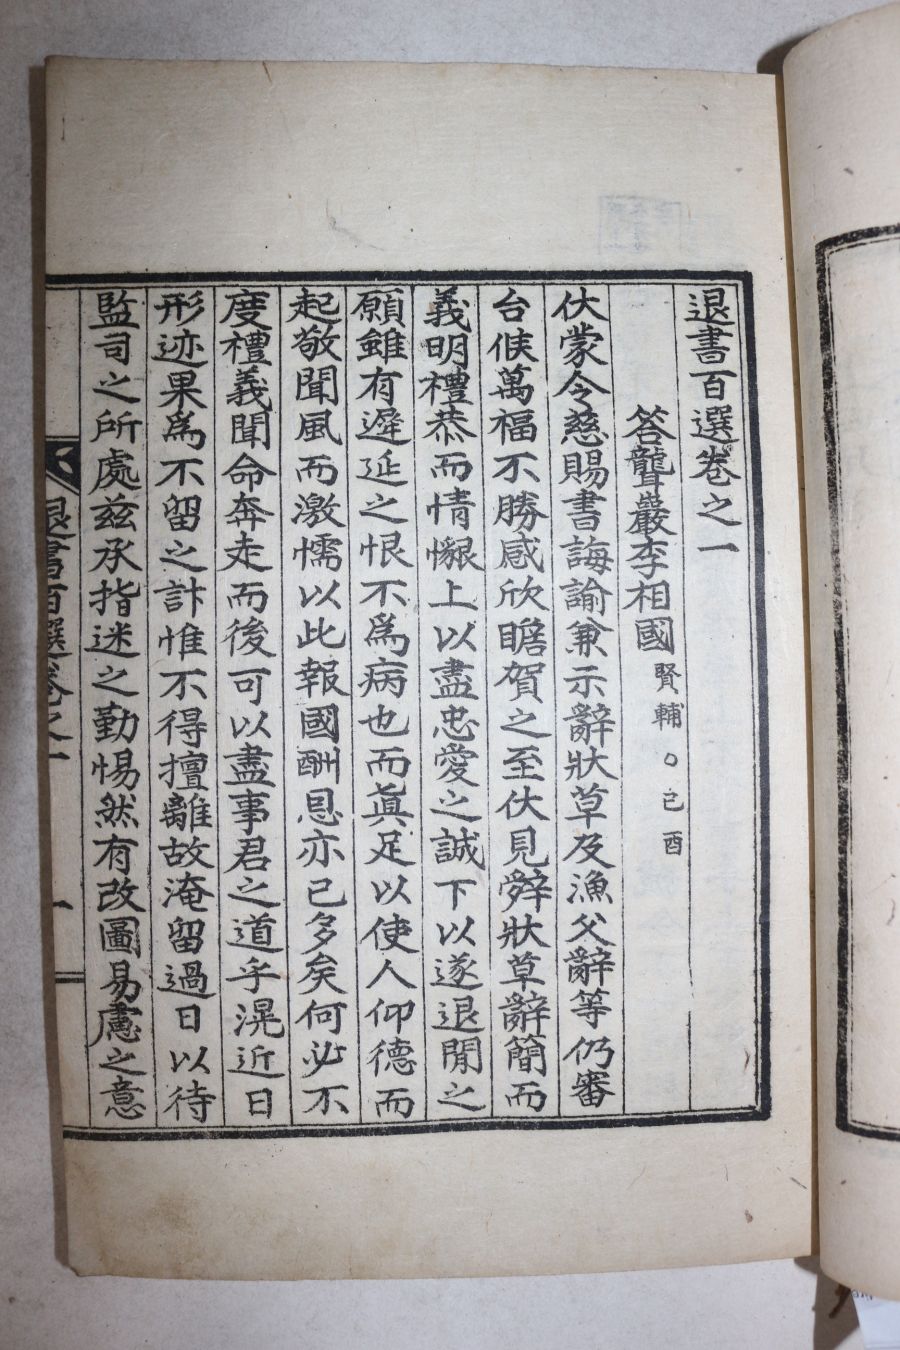 退書百選卷之一
答聾巖李相國賢輔○己酉
伏蒙令慈賜書誨諭兼示辭狀草及漁父辭等仍審
台候萬福不勝感欣瞻賀之至伏見辭狀草辭簡而
義明禮恭而情懇上以盡忠愛之誠下以遂退閒之
願雖有遲延之恨不爲病也而眞足以使人仰德而
起敬聞風而激懦以此報國酬恩亦已多矣何必不
度禮義聞命奔走而後可以盡事君之道乎滉近日
形迹果爲不留之計惟不得擅離故淹留過日以待
監司之所處玆承指迷之勤惕然有改圖易慮之意
退書百選卷之一
一